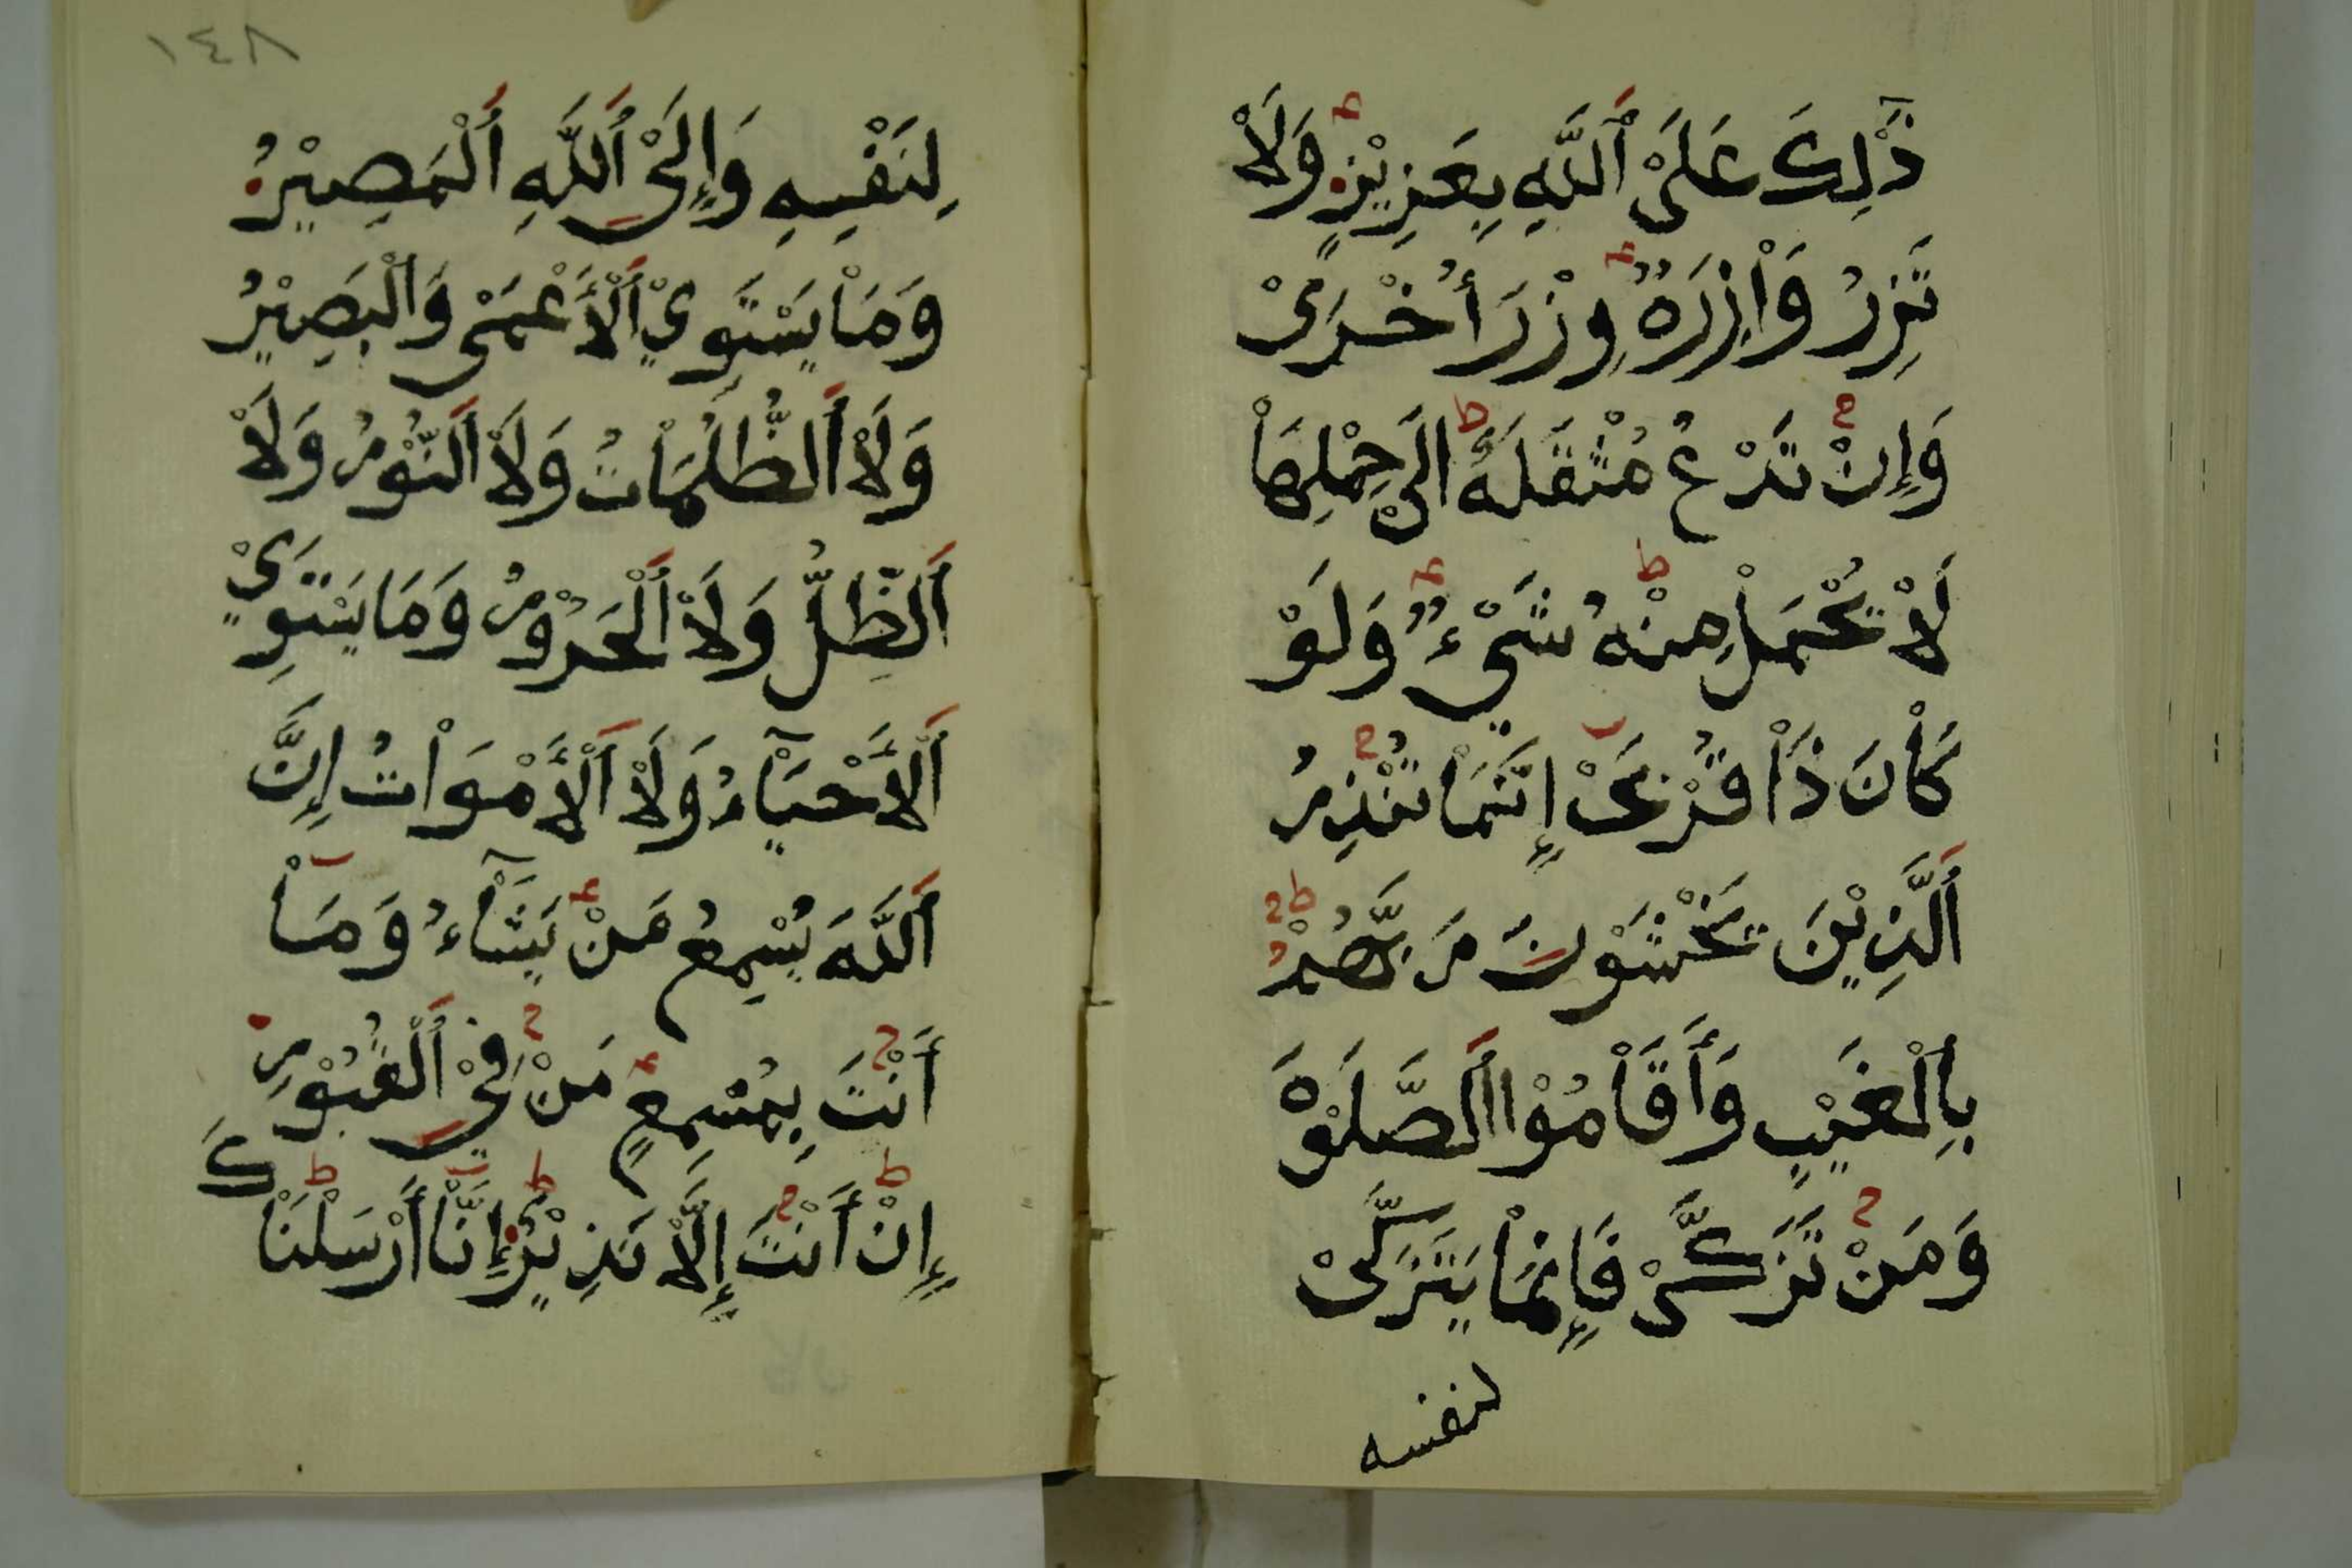 ذَٰلِكَ عَلَىْ ٱللَّهِ بِعَزِيْزٍ وَلَاْ
تَزِرُ وَاْزِرَةٌ وِزْرَ أُخْرَىْ
وَإِنْ تَدْعُ مُثْقَلَةٌ الَىْ حِمْلِهَاْ
لَاْ يُحْمَلْ مِنْهُ شَيْءٌ وَلَوْ
كَاْنَ ذَاْ قُرْبَىْ إِنَّمَاْ تُنْذِرُ
ٱلَّذِيْنَ يَخْشَوْنَ رَبَّهُمْ
بِاْلْغَيْبِ وَأَقَاْمُوْا اَلصَّلَوْةَ
وَمَنْ تَزَكَّىْ فَإِنَّمَاْ يَتَزَكَّىْ
لنفسه
١٤٨
لِنَفْسِهِ وَإِلَىْ ٱللَّهِ ٱلْمَصِيْرُ
وَمَاْ يَسْتَوِيْ ٱلْأَعْمَىْ وَالْبَصِيْرُ
وَلَاْ اَلظُّلُمَاْتُ وَلَاْ اَلنُّوْرُ وَلَاْ
اَلظِّلُّ وَلَاْ اَلْحَرُوْرُ وَمَا يَسْتَوِيْ
اَلْأَحْيَآْءُ وَلَاْ اَلْأَمْوَاْتُ إِنَّ
اَللَّهَ يُسْمِعُ مَنْ يَشَآْءُ وَمَآْ
أَنْتَ بِمُسْمِعٍ مَنْ فِيْ ٱلْقُبُوْرِ
إِنْ أَنْتَ إِلَّاْ نَذِيْرٌ إِنَّآْ أَرْسَلْنَاْكَ